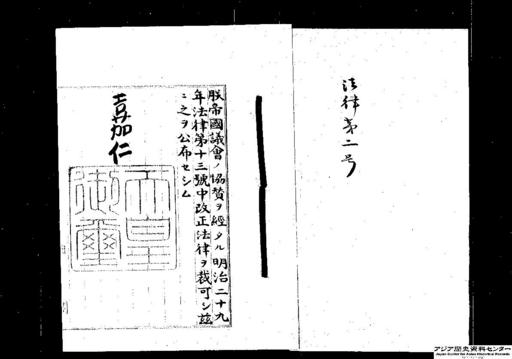 法律第二号
朕帝國議會ノ協賛ヲ經タル明治二十九
年法律第十三號中改正法律ヲ裁可シ茲
ニ之ヲ公布セシム
嘉仁
天皇
御璽
アジア歴史資料センター
Japan Center for Asian Historical Records